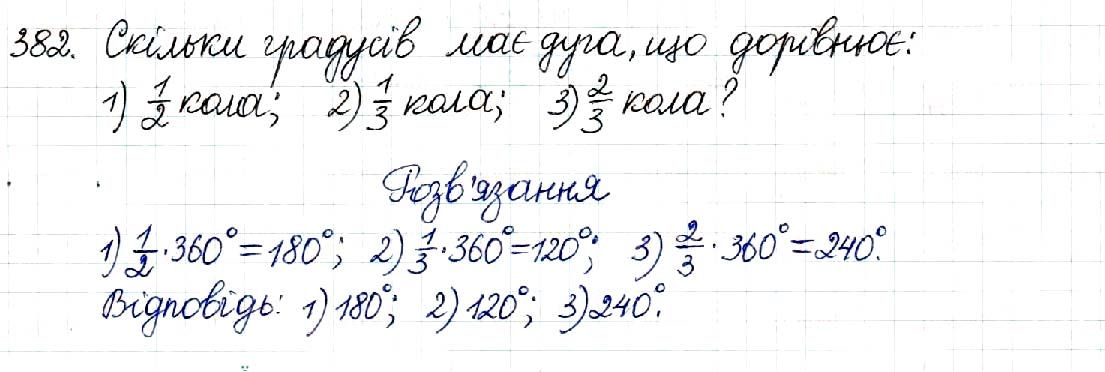 382. Скільки градусів має дуга, що дорівнює:
1) 1/2 кола; 2) 1/3 кола; 3) 2/3 кола?
Розв'язання
1) 1/2 · 360° = 180°; 2) 1/3 · 360° = 120°; 3) 2/3 · 360° = 240°.
Відповідь: 1) 180°; 2) 120°; 3) 240°.